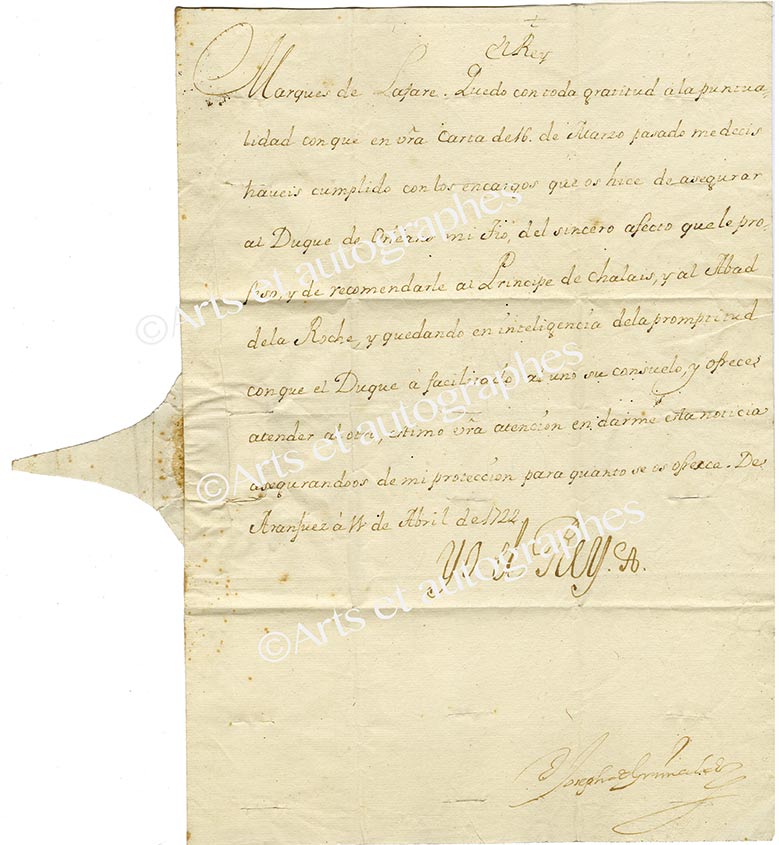 El Rey
Marques de Lafare. Quedo con toda gratitud a la puntua-
lidad con que en vra Carta de 16. de Marzo pasado me decis
haveis cumplido con los encargos que os hice de asegurar
al Duque de Orleans mi Tio, del sincero afecto que le pro-
feso, y de recomendarle al Principe de Chalais, y al Abad
de la Roche, y quedando en inteligencia de la promptitud
con que el Duque à facilitado al uno su consuelo, y ofreces
atender al otro, estimo vra atencion en darme esta noticia
asegurandoos de mi proteccion para quanto se os ofrece. De
Aranjuez à de Abril de 1722
Yo el Rey
Joseph de Grimaldo
©Arts et autographes
©Arts et autographes
©Arts et autographes